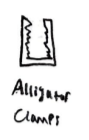 Alligator
Clamps